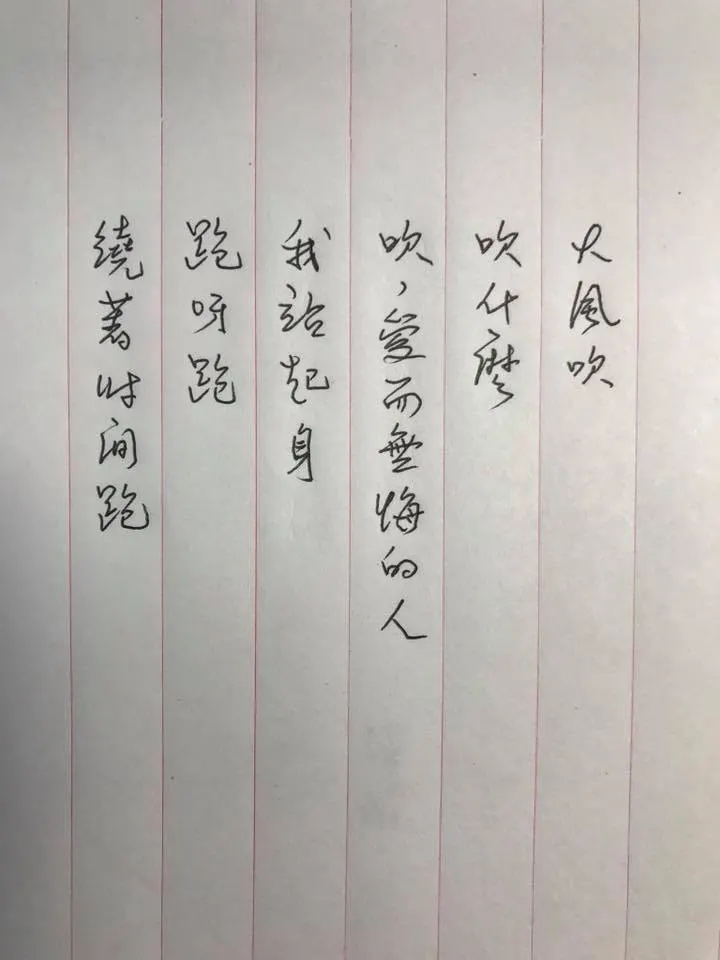 大風吹
吹什麼
吹，愛而無悔的人
我站起身
跑呀跑
繞著时间跑